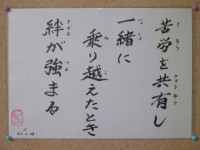 苦労を共有し
一緒に
乗り越えたとき
絆が強まる